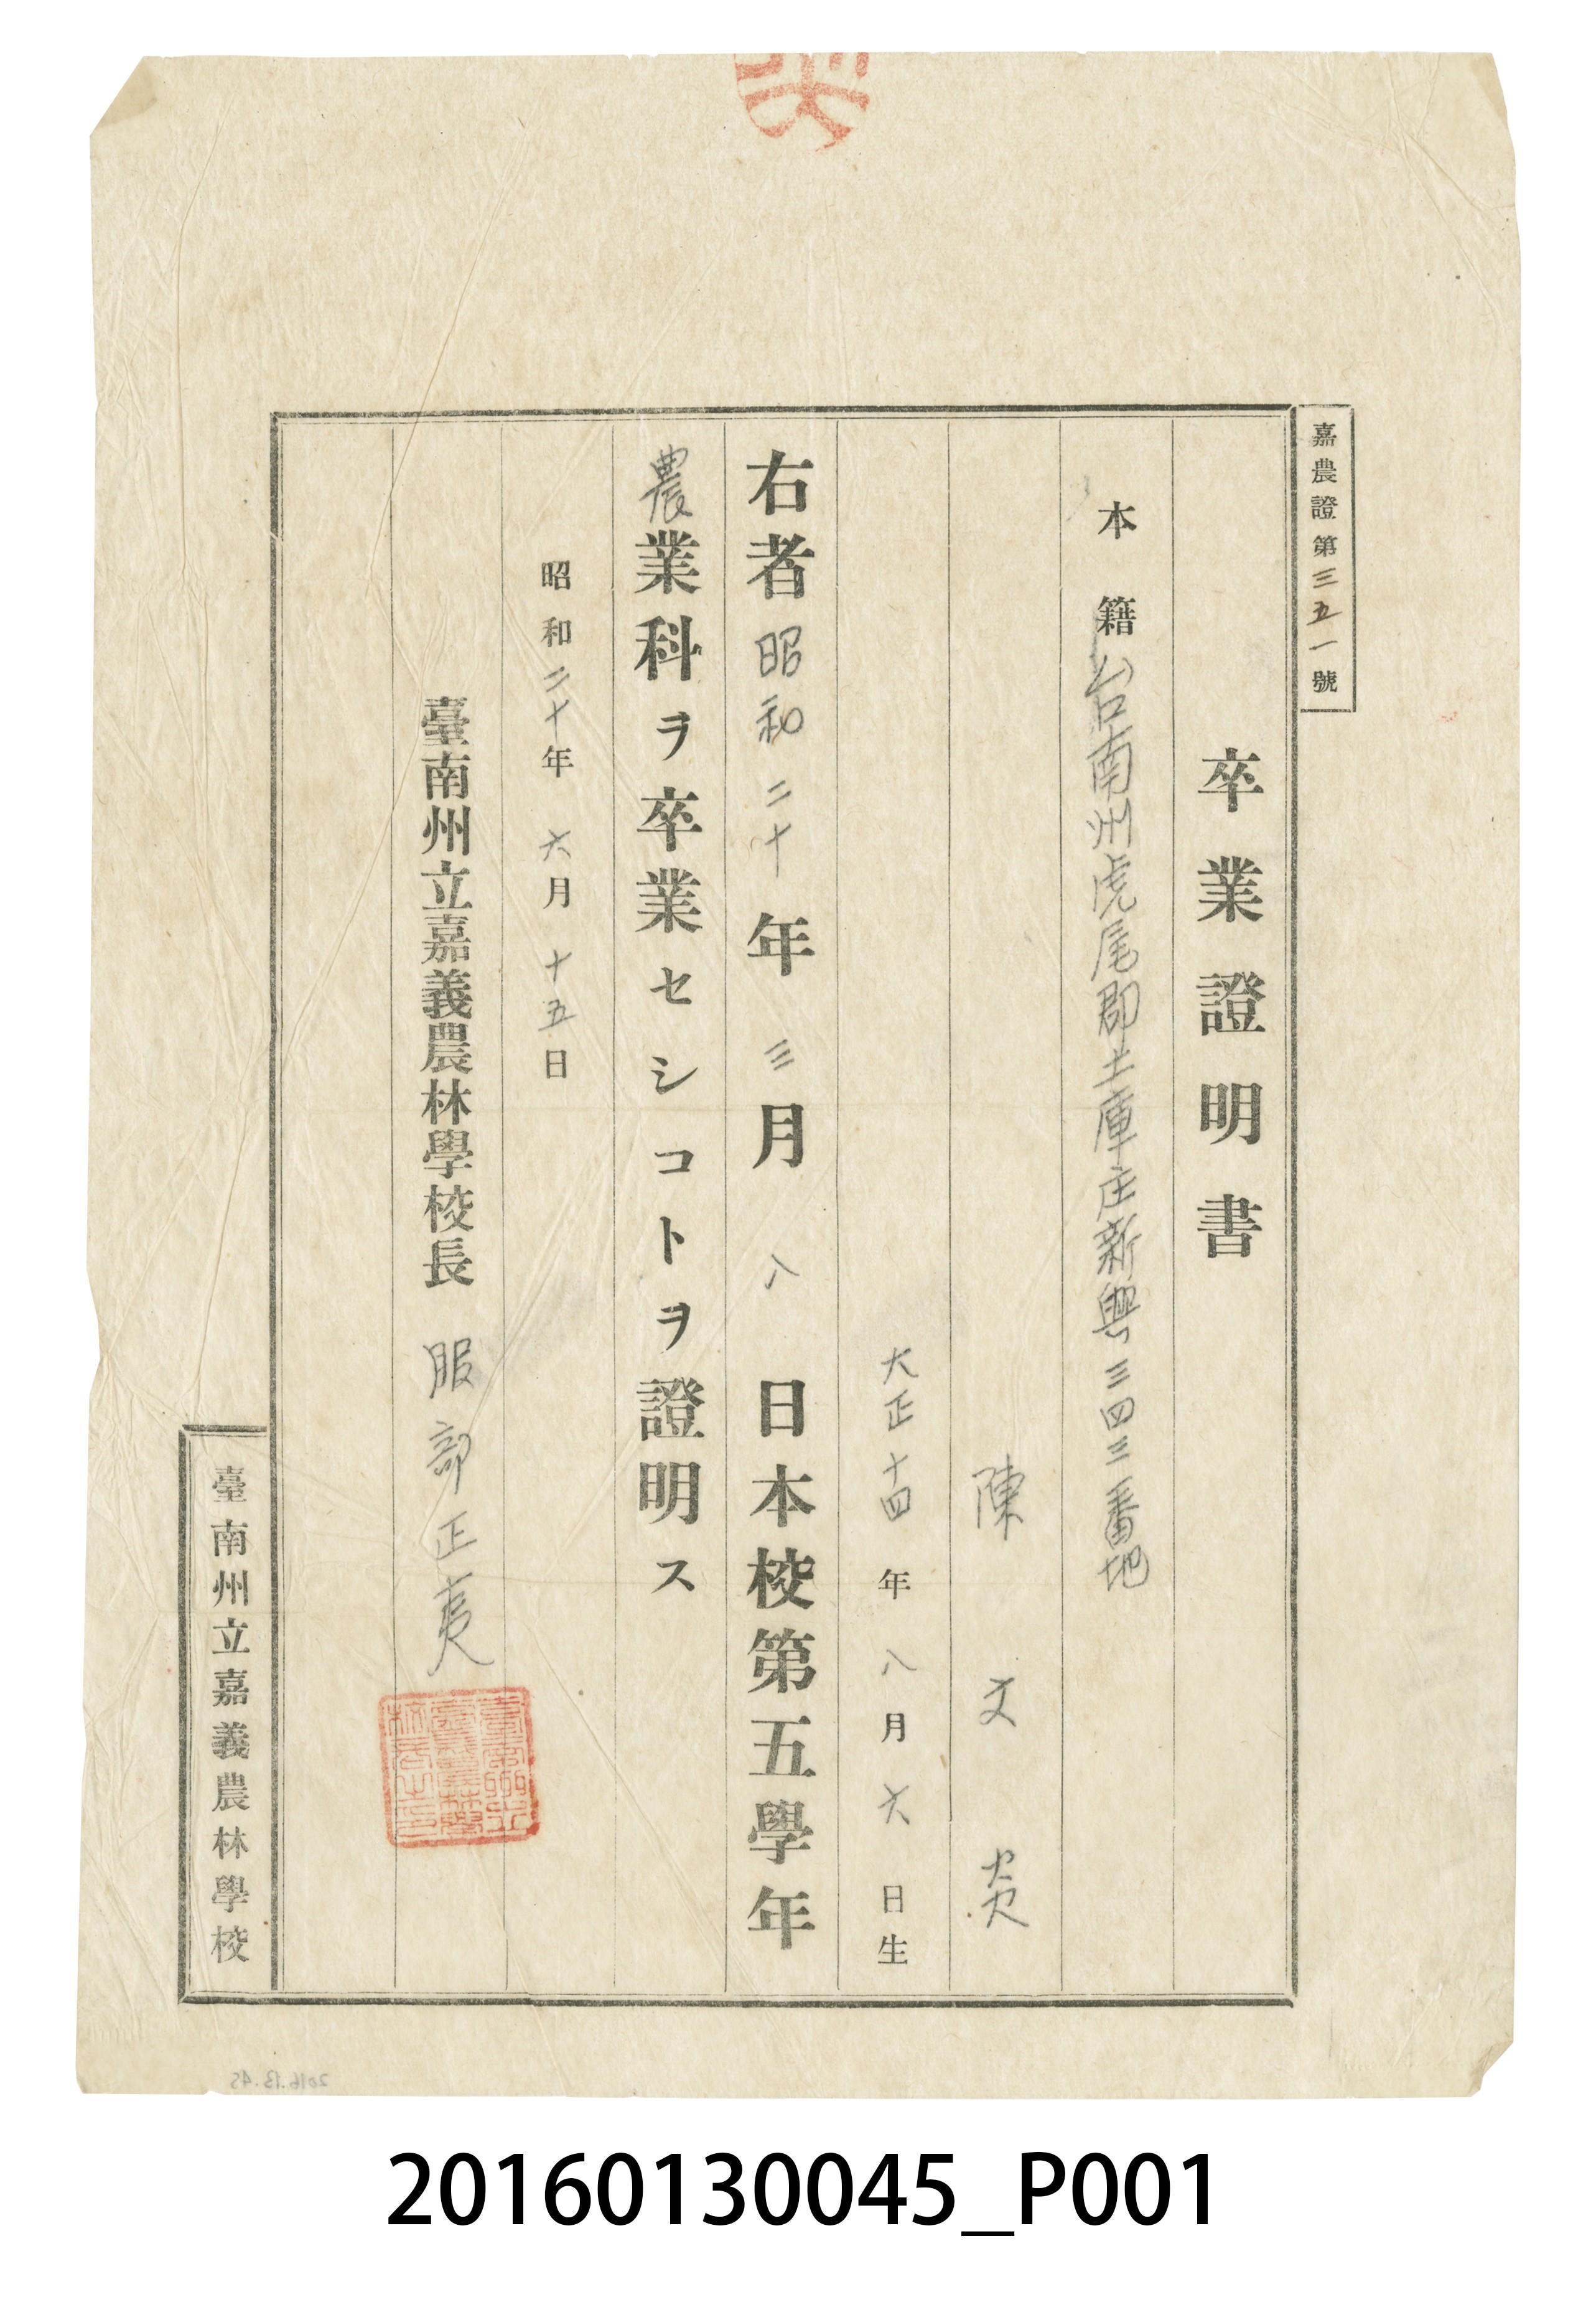 嘉農證第三五一號
卒業證明書
本籍台南州虎尾郡土庫庄新興三四三番地
陳文炎
大正十四年八月六日生
右者昭和二十年三月八日本校第五學年
農業科ヲ卒業セシコトヲ證明ス
昭和二十年六月十五日
臺南州立嘉義農林學校長 服部正夷
臺南州立嘉義農林學校
2016.13.45
20160130045_P001